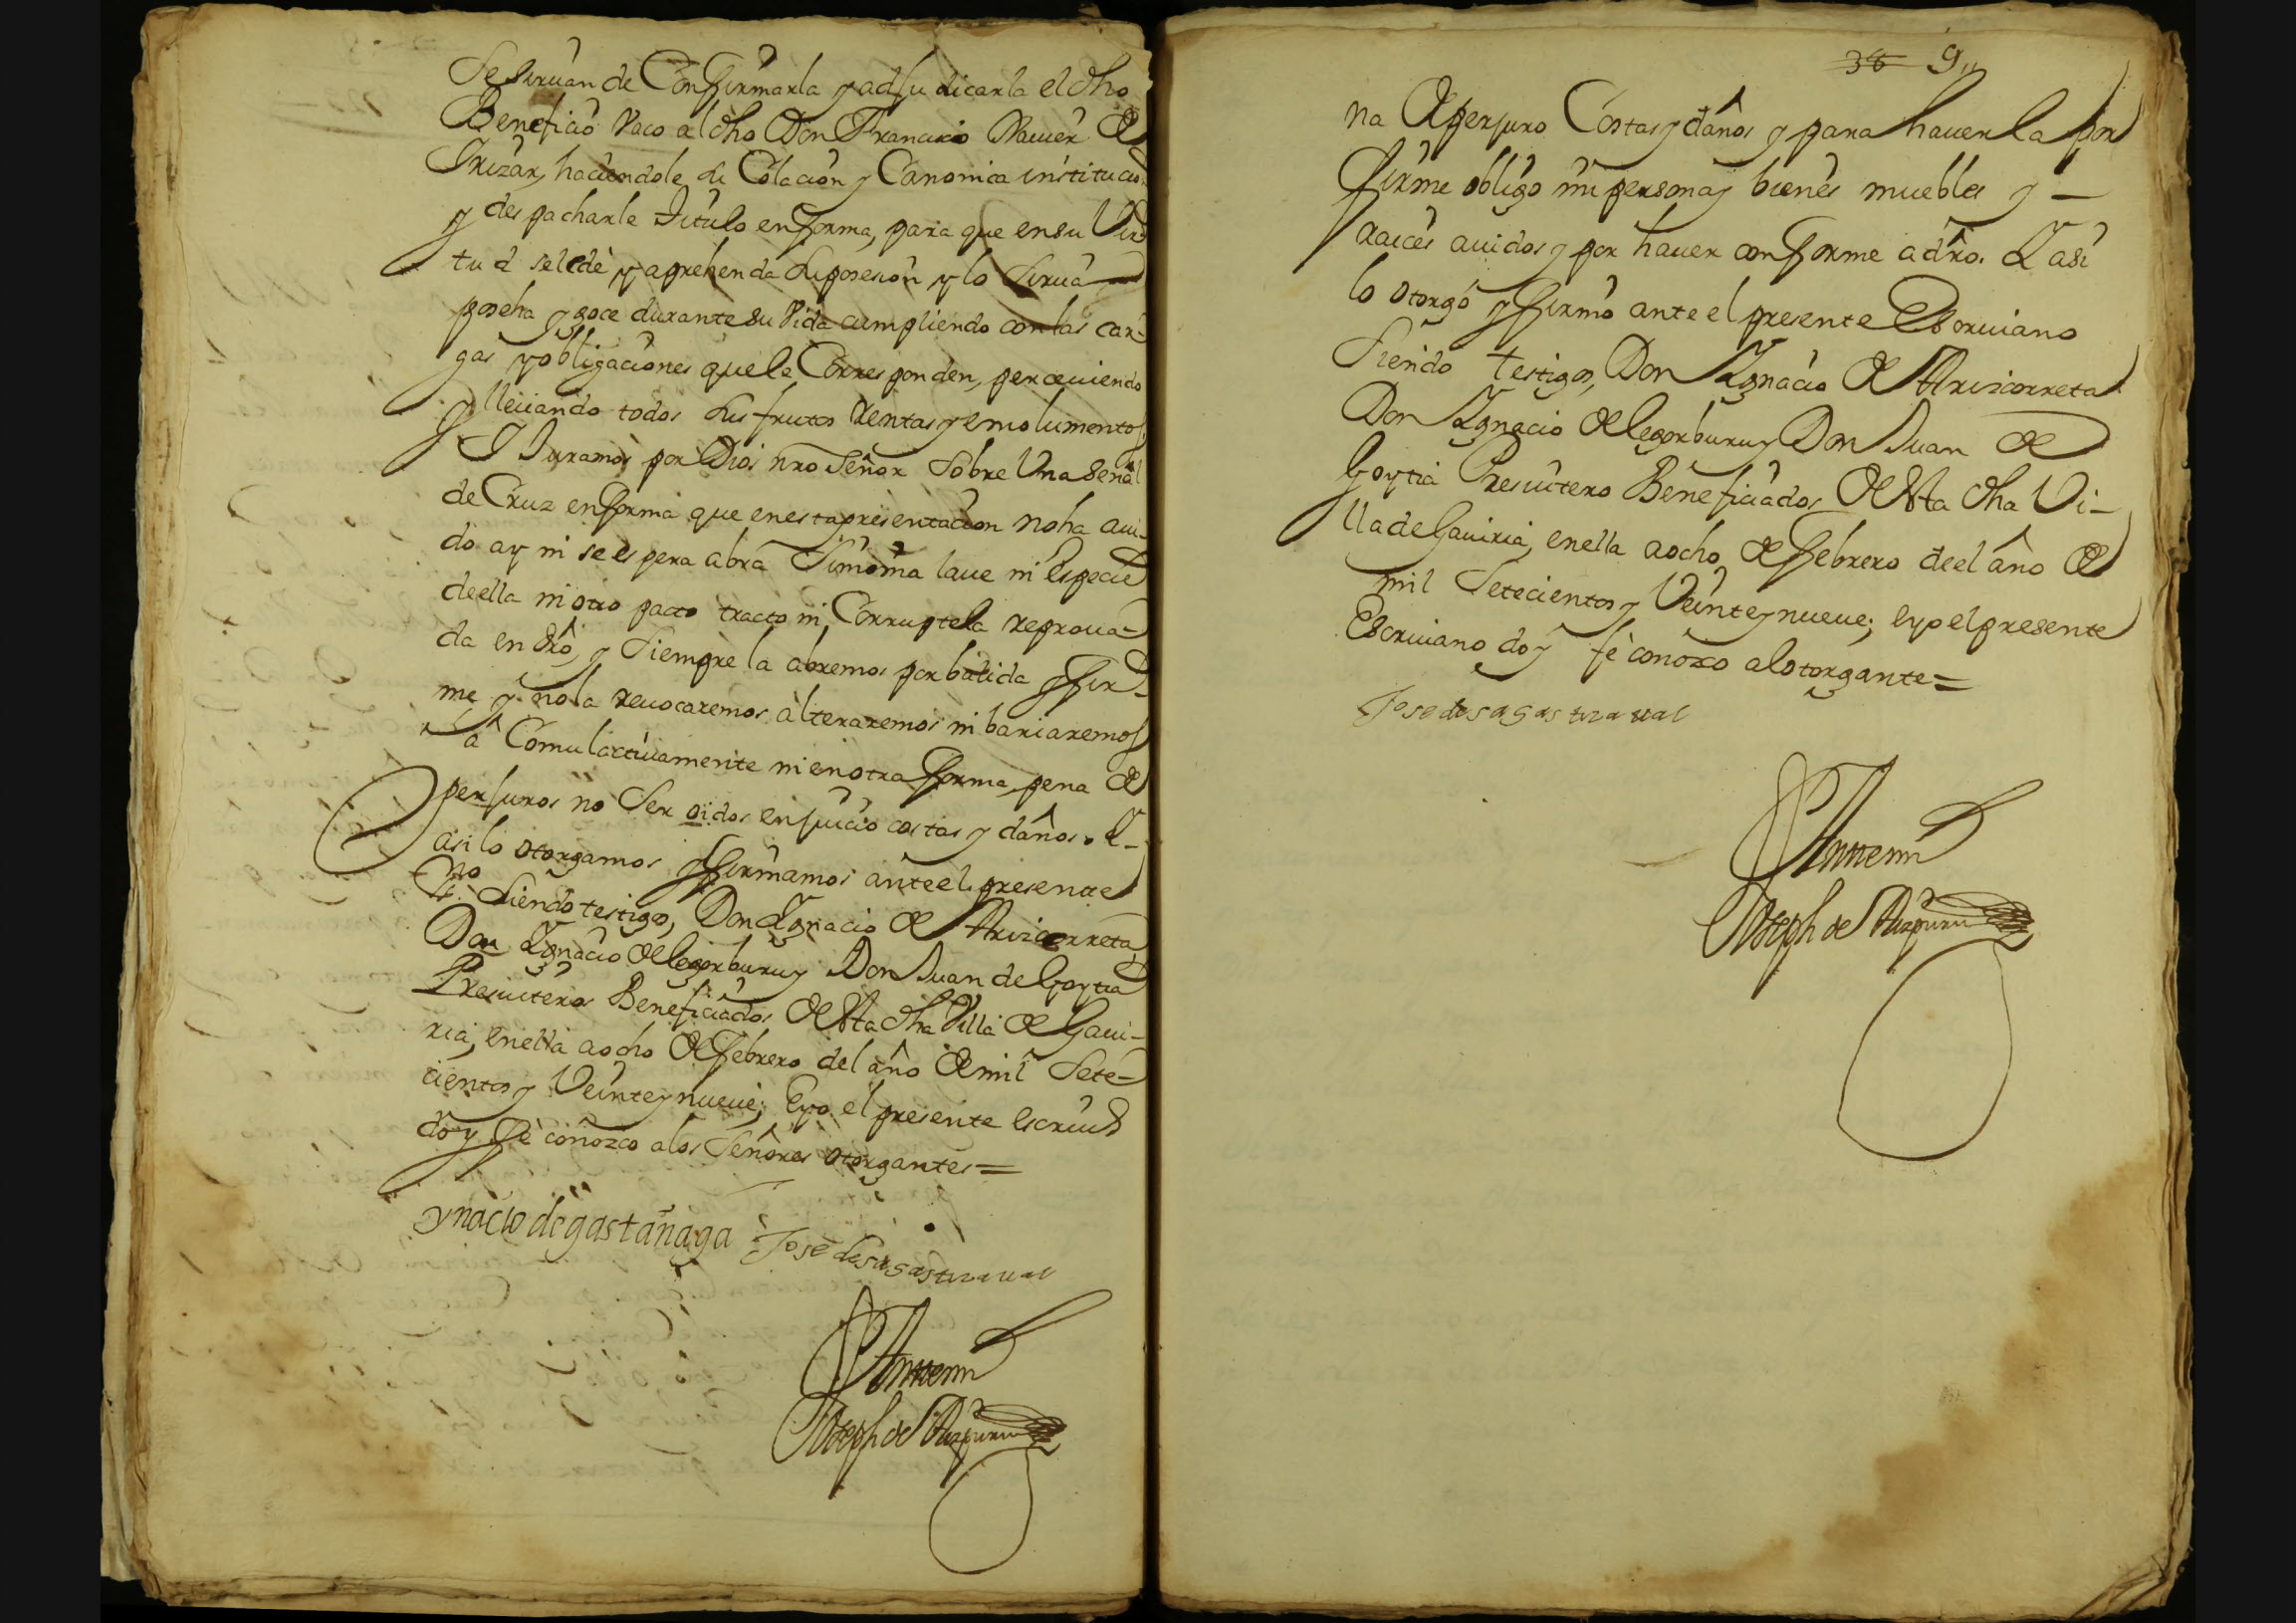 Se siruan de Confirmarla y adjudicarla el dho
Beneficio Vaco al dho Don Francisco Xauier de
Irizar, haciendole di Colacion y Canonica institucio
y despacharle Titulo en forma, para que en su Vir
tud sele dè y aprehenda su posesion y lo sirua
poseha y goce durante su Vida cumpliendo con las car-
gas y obligaciones que le Corresponden, perceuiendo
y lleuando todos sus frutos Rentas y emolumentos
Y Juramos por Dios nro Señor sobre Vna señal
de Cruz en forma que en esta presentacion no ha aui-
do ay ni se espera abrà Simonia laue ni Especie
de ella ni otro pacto tracto ni Corruptela reproua-
da en dro, y siempre la abremos por balida y fir-
me y no la reuocaremos alteraremos ni bariaremos
â Comulactiuamente ni en otra forma, pena de
perjuros no ser oidos en juicio costas y daños. Y-
asi lo otorgamos y firmamos ante el presente
siendo testigos, Don Ygnacio de Arizcorreta
Don Ygnacio de legorburu y Don Juan de Goytia
Presuiteros Beneficiados de sta dha Villa de Gaui-
ria, en ella a ocho de Febrero del año de mil Sete-
cientos y Veinte y nueue; Eyo el presente escriu
doy fè conozco alos Señores otorgantes=
ynacio de gastañaga Jose de sagastizaual
Ante mi
Joseph de Aizpuru
36 9
na de perjuro Costas y daños y para hauerla por
firme obligo mi persona y bienes muebles y -
raices auidos y por hauer conforme a dro. Y asi
lo otorgó y firmó ante el presente Escriuano
Siendo testigos, Don Ygnacio de Arizcorreta
Don Ygnacio de legorburu y Don Juan de
Goytia Presuitero Beneficiados de sta dha Vi-
lla de Gauiria, en ella a ocho de febrero de el año de
mil Setecientos y Veinte y nueue; eyo el presente
Escriuano doy fè conozco al otorgante=
Jose de sagastizaual
Ante mi
Joseph de Aizpuru